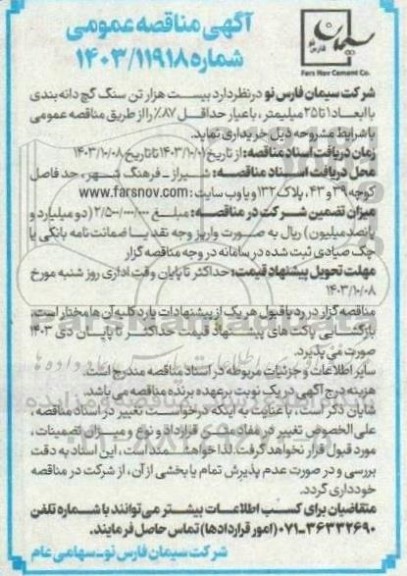 آگهی مناقصه عمومی
شماره ۱۴۰۳/۱۱۹۱۸
سیمان
فارس نو
Fars Nov Cement Co.
شرکت سیمان فارس نو در نظر دارد بیست هزار تن سنگ گچ دانه بندی
با ابعاد ۱ تا ۲۵ میلیمتر، با عیار حداقل ۸۷٪ را از طریق مناقصه عمومی
با شرایط مشروحه ذیل خریداری نماید.
زمان دریافت اسناد مناقصه: از تاریخ ۱۴۰۳/۱۰/۰۱ تا تاریخ ۱۴۰۳/۱۰/۰۸
محل دریافت اسناد مناقصه: شیراز - فرهنگ شهر، حد فاصل
کوچه ۳۹ و ۴۳، پلاک ۱۳۲ و یا وب سایت: www.farsnov.com
میزان تضمین شرکت در مناقصه: مبلغ ۲/۵۰۰/۰۰۰/۰۰۰ (دو میلیارد و
پانصد میلیون) ریال به صورت واریز وجه نقد یا ضمانت نامه بانکی یا
چک صیادی ثبت شده در سامانه در وجه مناقصه گزار
مهلت تحویل پیشنهاد قیمت: حداکثر تا پایان وقت اداری روز شنبه مورخ
۱۴۰۳/۱۰/۰۸
مناقصه گزار در رد یا قبول هر یک از پیشنهادات یا رد کلیه آن ها مختار است.
بازگشایی پاکت های پیشنهاد قیمت حداکثر تا پایان دی ۱۴۰۳
صورت می پذیرد.
سایر اطلاعات و جزئیات مربوطه در اسناد مناقصه مندرج است.
هزینه درج آگهی در یک نوبت بر عهده برنده مناقصه می باشد.
شایان ذکر است، با عنایت به اینکه درخواست تغییر در اسناد مناقصه،
علی الخصوص تغییر در مفاد متن قرارداد و نوع و میزان تضمینات،
مورد قبول قرار نخواهد گرفت. لذا خواهشمند است، این اسناد به دقت
بررسی و در صورت عدم پذیرش تمام یا بخشی از آن، از شرکت در مناقصه
خودداری گردد.
متقاضیان برای کسب اطلاعات بیشتر می توانند با شماره تلفن
۰۷۱-۳۶۳۳۲۶۹۰ (امور قراردادها) تماس حاصل فرمایند.
شرکت سیمان فارس نو-سهامی عام